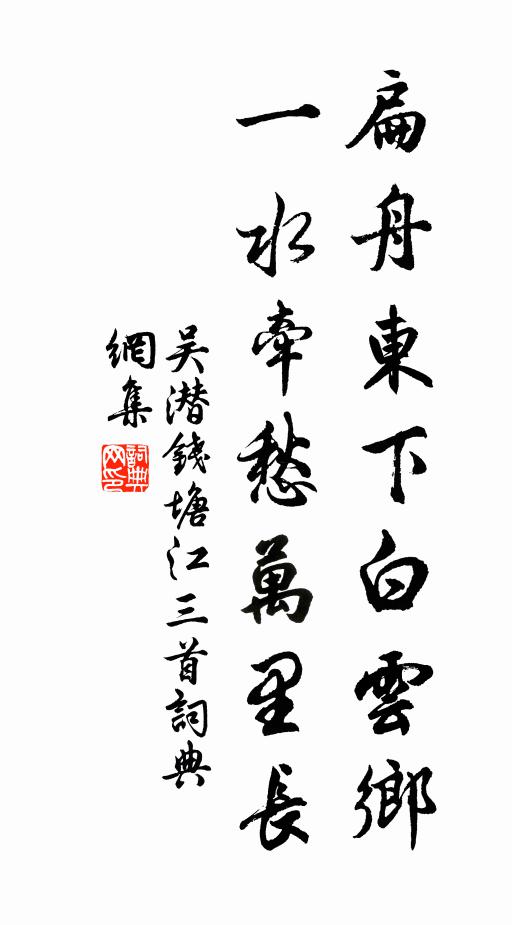 扁舟東下白雲鄉
一水牽愁萬里長
吴潜錢塘江三首詞典
網集
詞典
网印